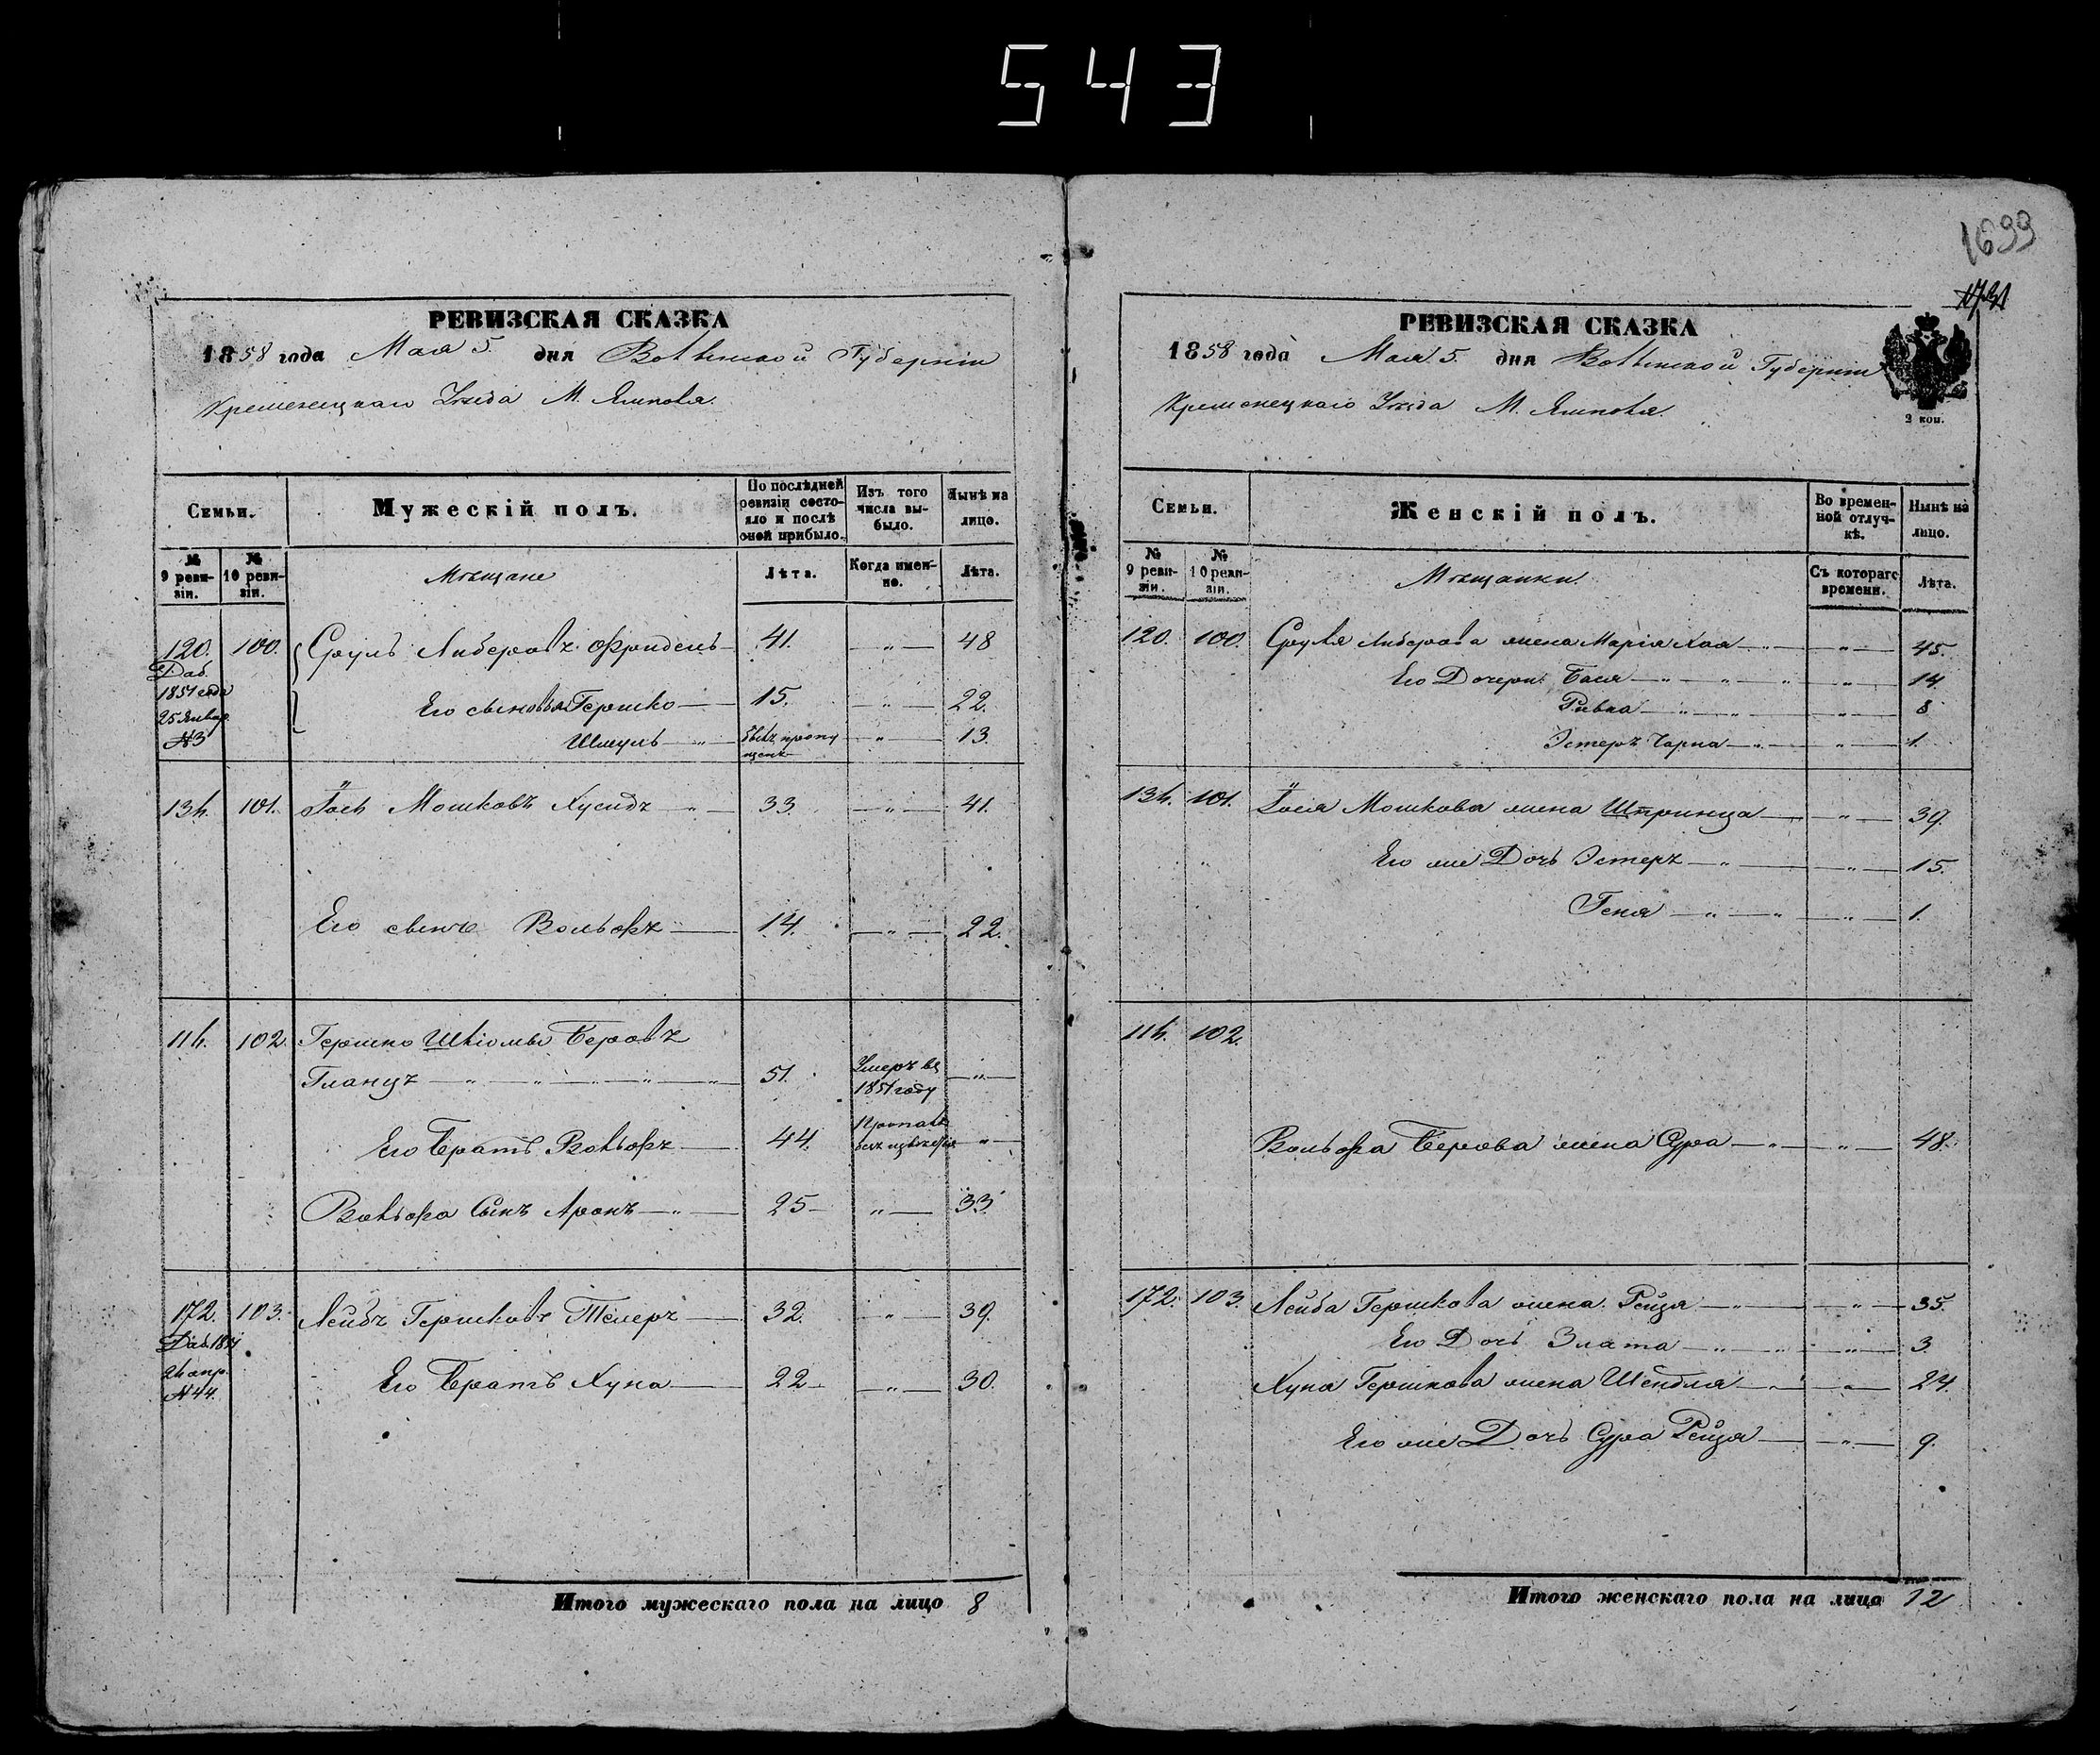 543
1699
1731
РЕВИЗСКАЯ СКАЗКА
1858 года Мая 5. дня Волынской Губерніи
Кременецкаго Уѣзда М. Ямполя.
Семьи.
Мужескій полъ.
По послѣдней ревизіи состояло и послѣ оной прибыло.
Изъ того числа выбыло.
Нынѣ на лицо.
№ 9 ревизіи.
№ 10 ревизіи.
Мѣщане
Лѣта.
Когда именно.
Лѣта.
120. 100. Сруль Либеровъ Фридель 41. — „ — 48
Доб.
1851 года
Его сыновья Гершко 15. — „ — 22.
25 Январ
№3
Шмуль — „ — былъ пропущенъ — „ — 13.
134. 101. Іось Мошковъ Хусидъ — „ — 33. — „ — 41.
Его сынъ Вольфъ 14. — „ — 22.
114. 102. Гершко Шліомы Беровъ
Гланцъ — „ — „ — „ — „ — „ 51. Умеръ въ 1851 году — „ —
Его братъ Вольфъ 44. безъ — „ —
Вольфа Сынъ Аронъ — „ — 25 — „ — 33
172. 103. Лейбъ Гершковъ Телеръ 32. — „ — 39.
Доб. 1851
24 апр.
Его братъ Хуна 22 — „ — 30.
№44.
Итого мужескаго пола на лицо 8
РЕВИЗСКАЯ СКАЗКА
1858 года Мая 5. дня Волынской Губерніи
Кременецкаго Уѣзда М. Ямполя.
2 коп.
Семьи.
Женскій полъ.
Во временной отлучкѣ.
Нынѣ на лицо.
№ 9 ревизіи.
№ 10 ревизіи.
Мѣщанки.
Съ котораго времени.
Лѣта.
120. 100. Сруля Либерова жена Марія Хая — „ — „ — 45.
Его Дочери: Бася — „ — „ — „ — „ — 14
Ривка — „ — „ — „ — 8
Эстеръ Чарна — „ — „ — 1.
134. 101. Іося Мошкова жена Штринца — „ — 39.
Его же Дочь Эстеръ — „ — „ — 15.
Геня — „ — „ — „ — 1.
114. 102.
Вольфа Берова жена Сура — „ — „ — 48.
172. 103. Лейба Гершкова жена Рейзя — „ — „ — 35.
Его Дочь Злата — „ — „ — „ — 3
Хуна Гершкова жена Шейдля — „ — „ — 24.
Его же Дочь Сура Рейзя — „ — 9.
Итого женскаго пола на лицо 12